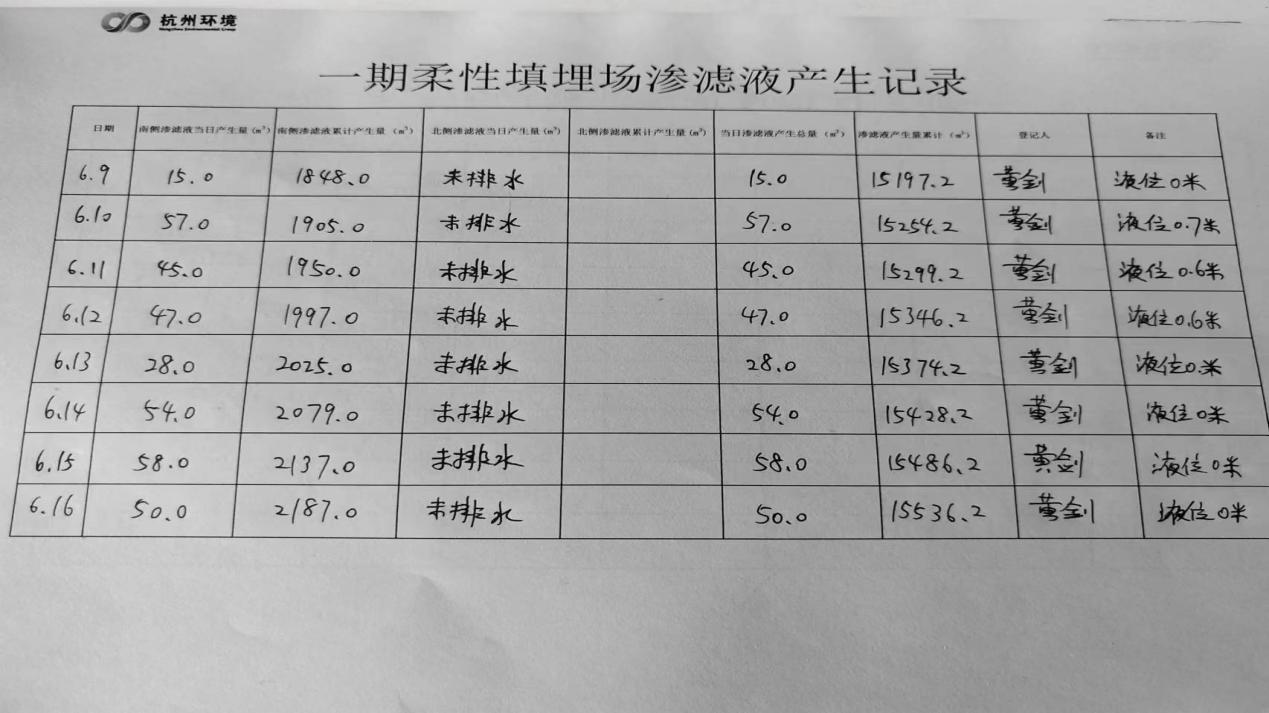 杭州环境
Hangzhou Environmental Group
一期柔性填埋场渗滤液产生记录
日期 南侧渗滤液当日产生量(m³) 南侧渗滤液累计产生量（m³） 北侧渗滤液当日产生量(m³) 北侧渗滤液累计产生量(m³) 当日渗滤液产生总量（m³） 渗滤液产生量累计（m³） 登记人 备注
6.9 15.0 1848.0 未排水 15.0 15197.2 黄剑 液位0米
6.10 57.0 1905.0 未排水 57.0 15254.2 黄剑 液位0.7米
6.11 45.0 1950.0 未排水 45.0 15299.2 黄剑 液位0.6米
6.12 47.0 1997.0 未排水 47.0 15346.2 黄剑 液位0.6米
6.13 28.0 2025.0 未排水 28.0 15374.2 黄剑 液位0.米
6.14 54.0 2079.0 未排水 54.0 15428.2 黄剑 液位0米
6.15 58.0 2137.0 未排水 58.0 15486.2 黄剑 液位0米
6.16 50.0 2187.0 未排水 50.0 15536.2 黄剑 液位0米